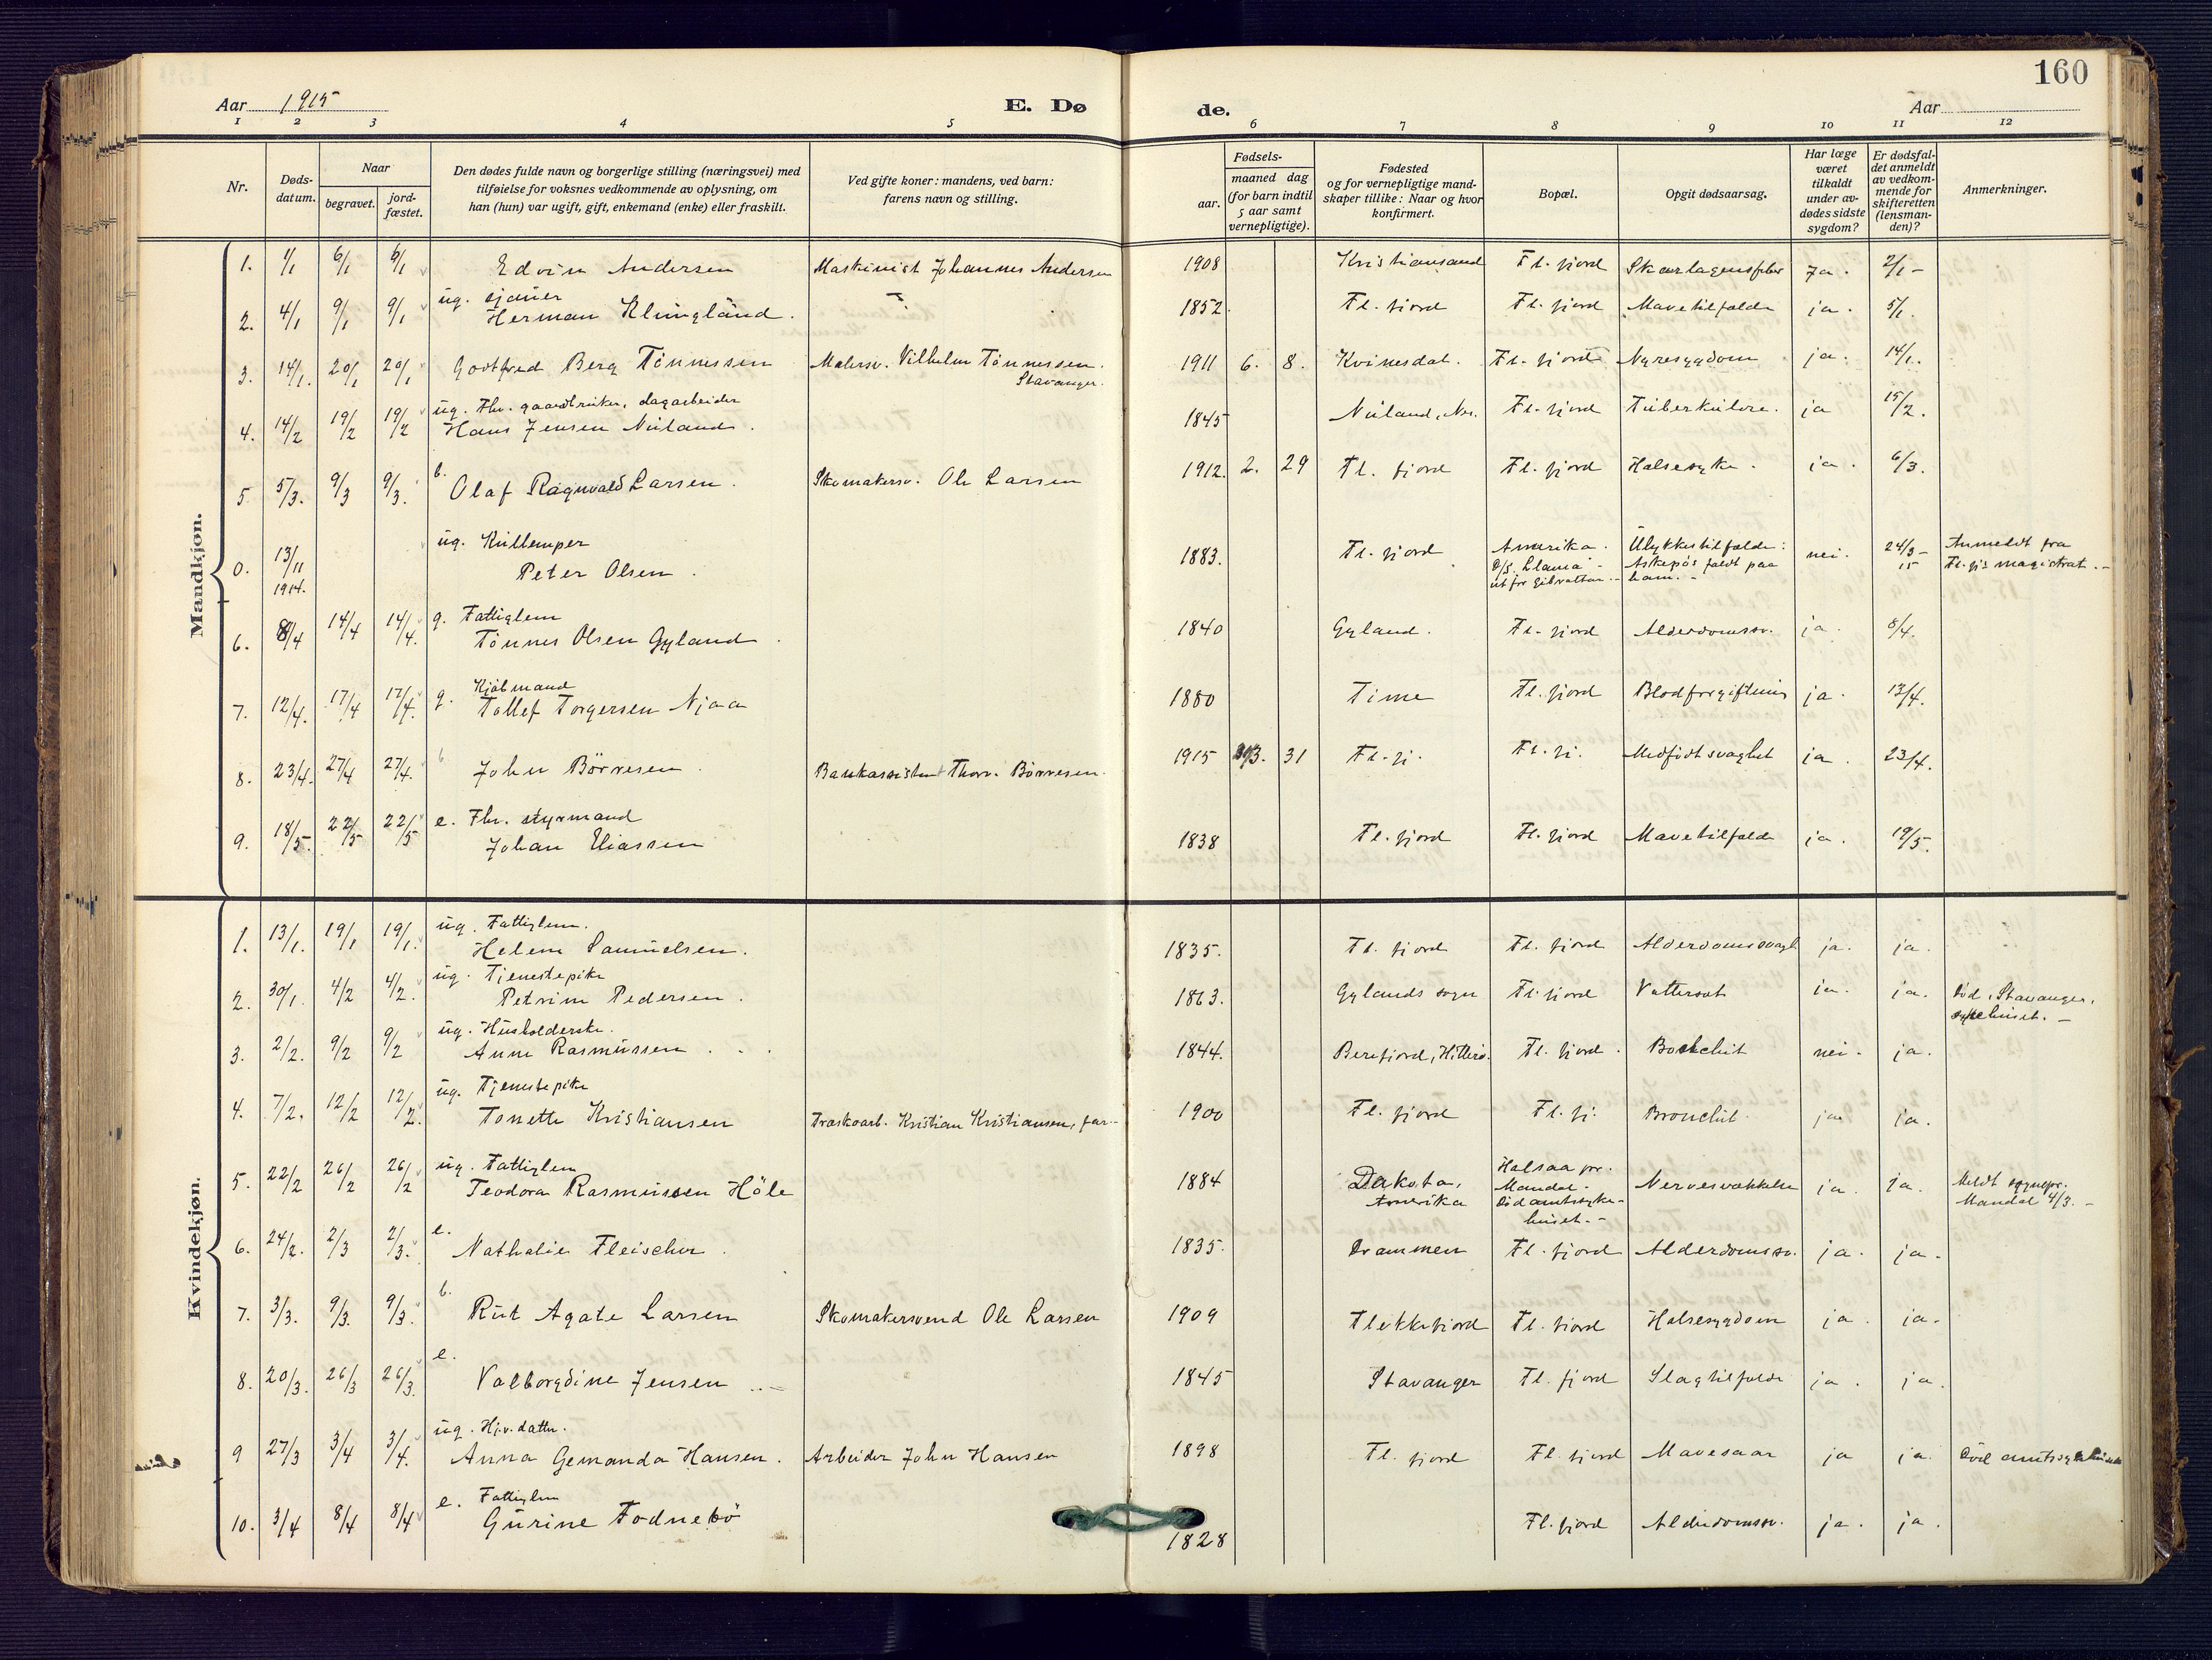 160
Aar 1915 E. Dø de. Aar
1 2 3 4 5 6 7 8 9 10 11 12
Nr.
Døds-
datum.
Naar
begravet.
jord-
fæstet.
Den dødes fulde navn og borgerlige stilling (næringsvei) med
tilføielse for voksnes vedkommende av oplysning, om
han (hun) var ugift, gift, enkemand (enke) eller fraskilt.
Ved gifte koner: mandens, ved barn:
farens navn og stilling.
Fødsels-
aar.
maaned dag
(for barn indtil
5 aar samt
vernepligtige).
Fødested
og for vernepligtige mand-
skaper tillike: Naar og hvor
konfirmert.
Bopæl.
Opgit dødsaarsag.
Har læge
været
tilkaldt
under av-
dødes sidste
sygdom?
Er dødsfal-
det anmeldt
av vedkom-
mende for
skifteretten
(lensman-
den)?
Anmerkninger.
Mandkjøn.
1. 1/1 6/1 6/1 Edvin Andersen Maskinist Johannes Andersen 1908 Kristiansand Fl. fjord Skarlagensfeber Ja. 2/1 -
ug. sjauer
2. 4/1 9/1 9/1 Herman Klungland. 1852 Fl. fjord Fl. fjord Mavetilfælde ja. 5/1.
3. 14/1. 20/1 20/1 Godtfred Berg Tönnessen Malersv. Vilhelm Tönnessen. 1911 6. 8. Kvinesdal. Fl. fjord Nyresygdom ja. 14/1.
Stavanger.
ug. Fhv. gaardbruker, dagarbeider
4. 14/2 19/2 19/2 Hans Jensen Nuland. 1845 Nuland, Nes. Fl. fjord Tuberkulose. ja 15/2.
b.
5. 5/3. 9/3 9/3. Olaf Ragnvald Larsen. Skomakersv. Ole Larsen 1912. 2. 29 Fl. fjord Fl. fjord Halsesyke. ja. 6/3.
ug. Kullemper
0. 13/11 1914. Peter Olsen. 1883. Fl. fjord Amerika. Ulykkestilfælde: nei. 24/3 - 15 Anmeldt fra
D/S. Llama - Askepøs faldt paa Fl. fj.s magistrat. -
ut for Gibraltar. - ham. -
g. Fattiglem
6. 8/4 14/4 14/4. Tönnes Olsen Gyland 1840 Gyland. Fl. fjord Alderdomssv. ja. 8/4.
g. Kjöbmand
7. 12/4. 17/4 17/4. Tollef Torgersen Njaa 1880 Time Fl. fjord Blodforgiftning ja. 13/4.
b
8. 23/4. 27/4 27/4. John Börresen Bankassistent Thorv. Börresen. 1915 3. 31 Fl. fj. Fl. fj. Medfödt svaghet ja. 23/4.
e. Fhv. styrmand
9. 18/5. 22/5 22/5 Johan Eliassen 1838 Fl. fjord Fl. fjord Mavetilfælde ja. 19/5.
Kvindekjøn.
ug. Fattiglem.
1. 13/1. 19/1 19/1. Helene Samuelsen. 1835. Fl. fjord Fl. fjord Alderdomssvagh ja. ja.
ug. Tjenestepike
2. 30/1. 4/2 4/2. Petrine Pedersen. 1863. Gylands sogn Fl. fjord Vattersot ja. ja. Död i Stavanger,
sykehuset. -
ug. Husholderske.
3. 2/2. 9/2 9/2 Anne Rasmussen 1844. Berefjord, Hitterö. Fl. fjord. nei. ja.
ug. Tjenestepike
4. 7/2. 12/2 12/2. Tonette Kristiansen Træskoarb. Kristian Kristiansen, far - 1900 Fl. fjord Fl. fj. Bronchit. ja ja.
ug. Fattiglem
5. 22/2 26/2 26/2 Teodora Rasmussen Höle 1884 Dakota, Amerika Halsaa pr. Mandal. Nervesvækkelse ja. ja. Meldt sognepr.
Död amtssyke- Mandal 4/3. -
huset. -
e.
6. 24/2. 2/3 2/3. Nathalie Fleischer. 1835. Drammen Fl. fjord Alderdomssv. ja. ja.
b.
7. 3/3. 9/3. 9/3. Rut Agate Larsen Skomakersvend Ole Larsen 1909 Flekkefjord Fl. fjord Halsesygdom ja. ja.
e.
8. 20/3. 26/3 26/3. Valborgdine Jensen 1845 Stavanger Fl. fjord Slagtilfælde ja. ja.
ug. Hjv. datter.
9 27/3 3/4 3/4. Anna Gemanda Hansen. Arbeider John Hansen 1898 Fl. fjord Fl. fjord Mavesaar ja ja. Död amtssykehuset
e. Fattiglem
10. 3/4 8/4 8/4 Gurine Fodnebö 1828 Fl. fjord Alderdomssv. ja. ja.